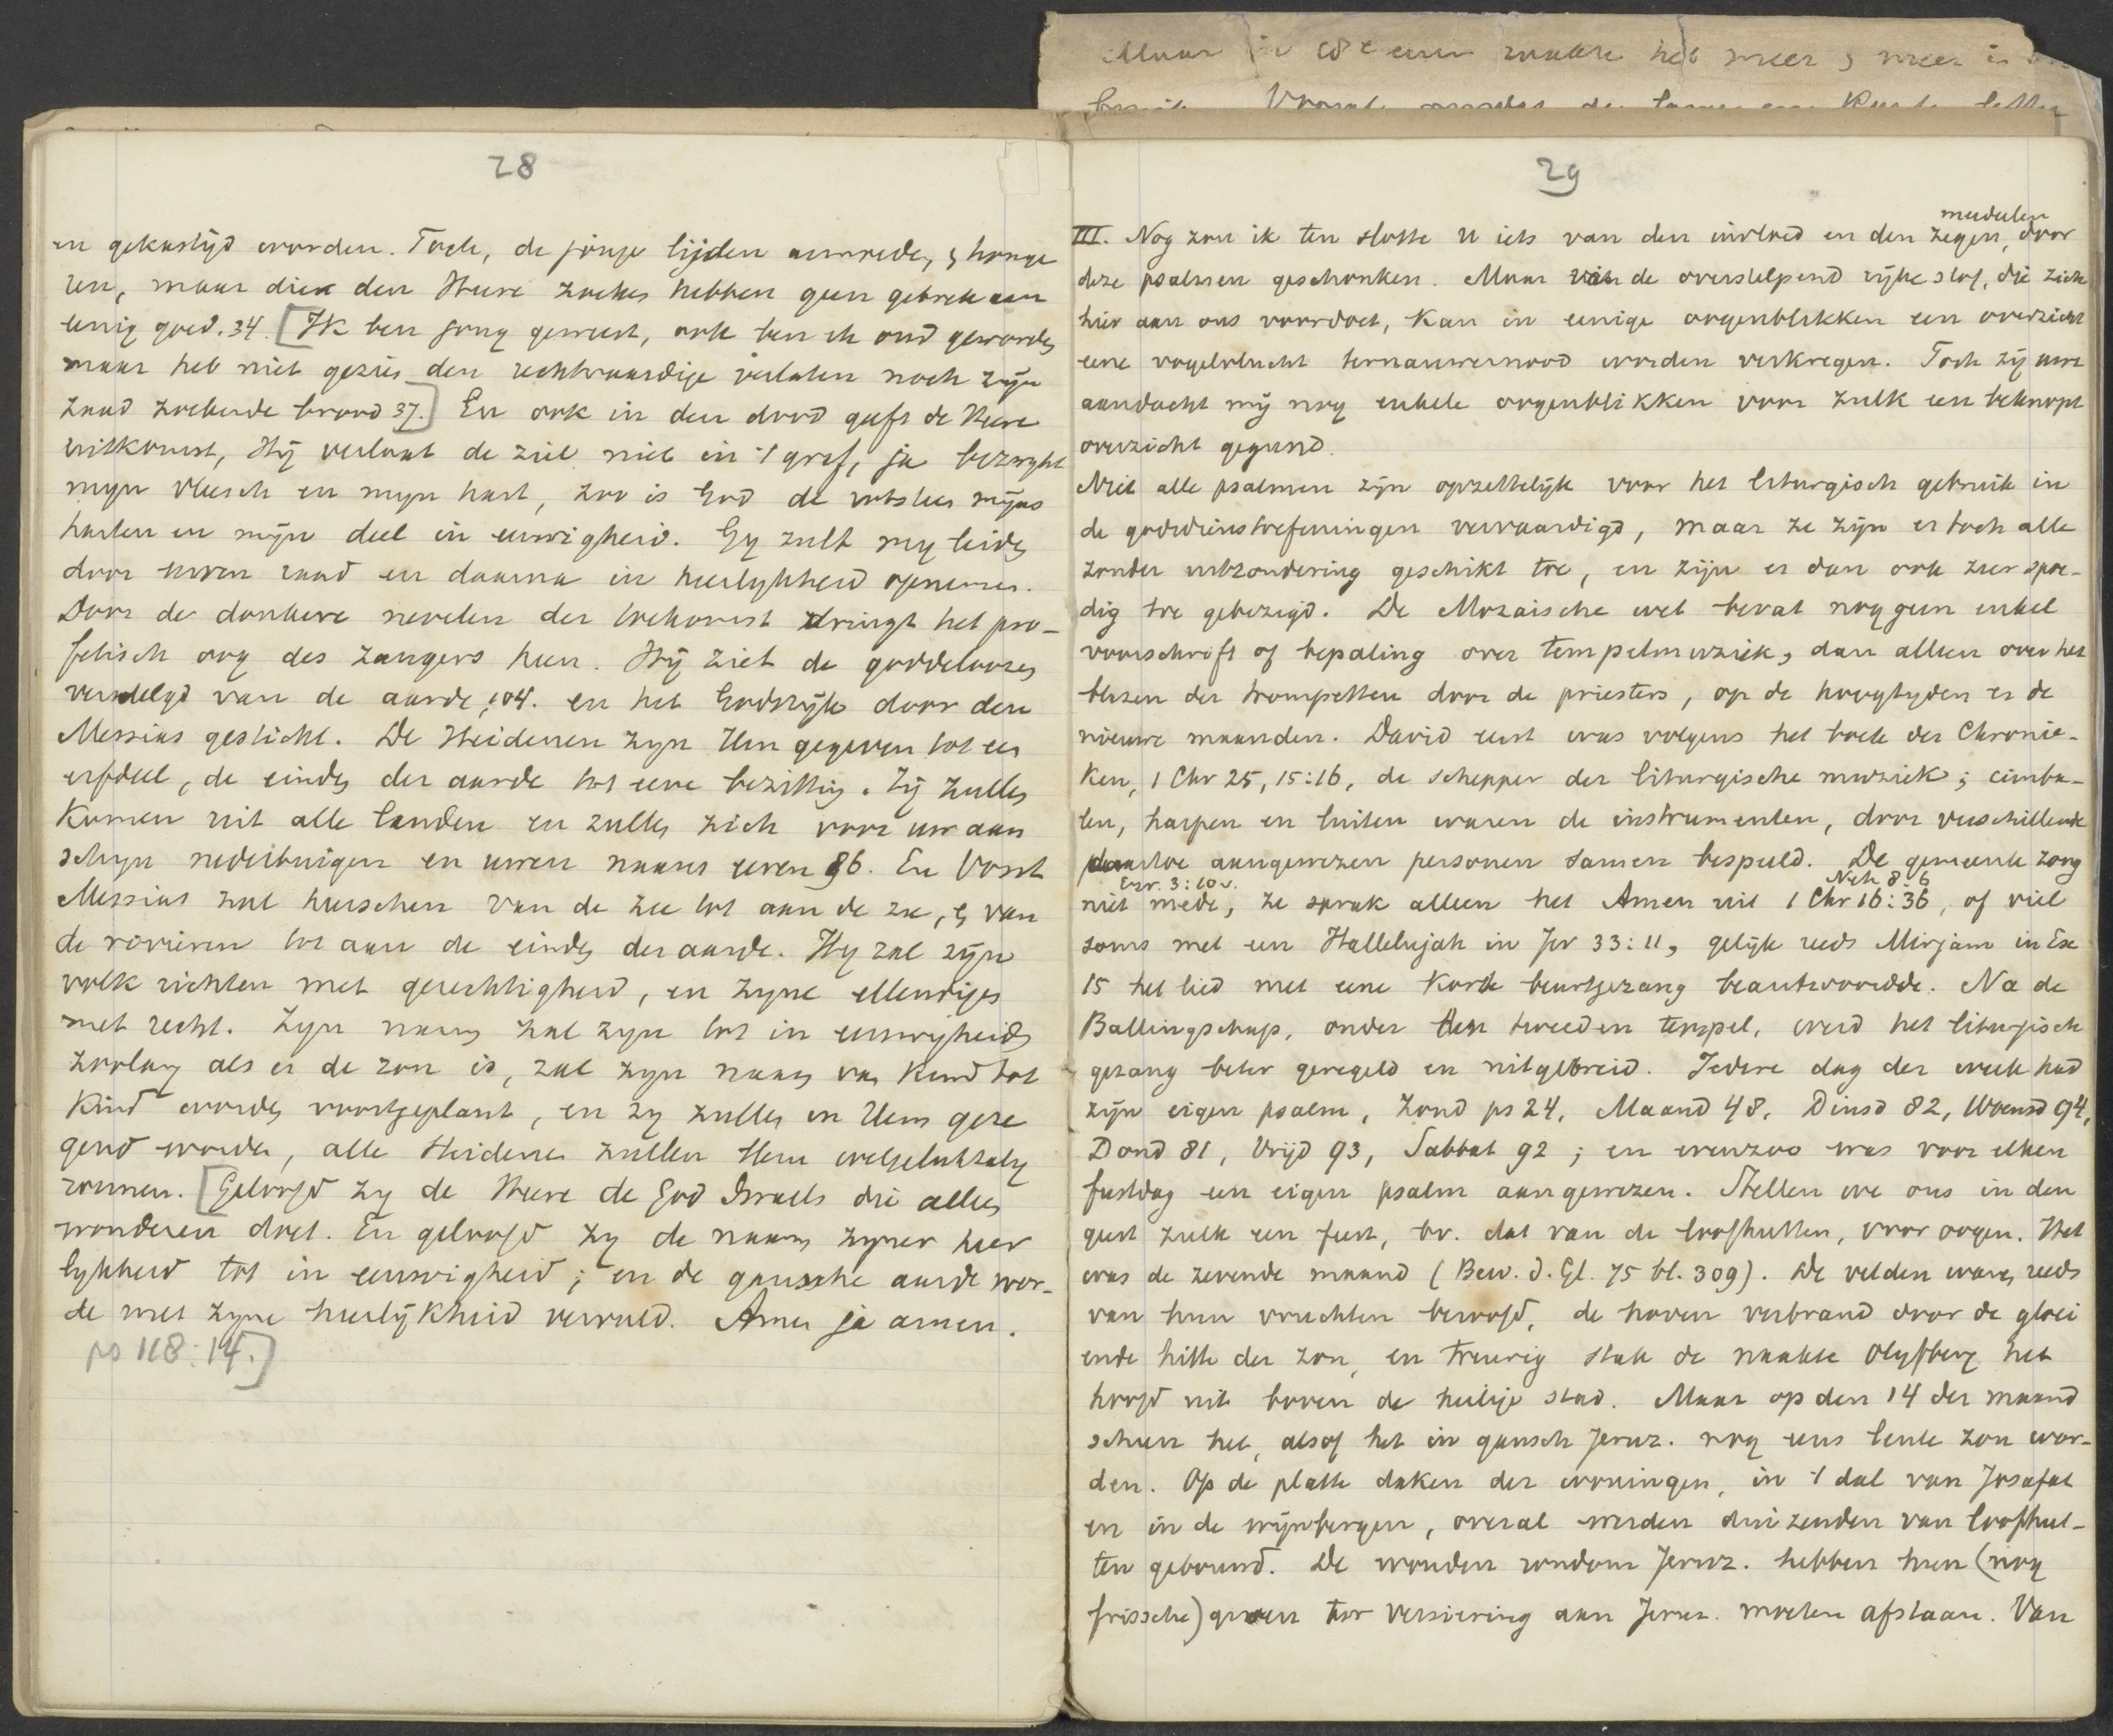 Maar in 18e eeuw raakte het meer & meer in
28
en gekastijd worden. Toch, de jonge lijden armoede, & honge
ren, maar die den Heere zoeken hebben geen gebrek aan
eenig goed. 34. [Ik ben jong geweest, ook ben ik oud geworden
maar heb niet gezien den rechtvaardige verlaten noch zijn
zaad zoekende brood 37.] En ook in den dood geeft de Heere
uitkomst, Hij verlaat de ziel niet in 't graf, ja bezwijkt
mijn vleesch en mijn hart, zoo is God de rotssteen mijns
harten en mijn deel in eeuwigheid. Gij zult mij leiden
door uwen raad en daarna in heerlykheid opnemen.
Door de donkere nevelen der toekomst dringt het pro-
fetisch oog des zangers heen. Hij ziet de goddeloozen
verdelgd van de aarde, 104. en het Godsrijk door den
Messias gesticht. De Heidenen zijn Hem gegeven tot een
erfdeel, de einden der aarde tot eene bezitting. Zij zullen
Komen uit alle landen en zullen zich voor uw aan
schijn nederbuigen en uwen naam eeren 86. En Vorst
Messias zal heerschen van de zee tot aan de zee, & van
de rivieren tot aan de einden der aarde. Hij zal zijn
volk richten met gerechtigheid, en zijne ellendigen
met recht. Zijn naam zal zijn tot in eeuwigheid
zoolang als er de zon is, zal zijn naam van Kind tot
Kind worden voortgeplant, en zij zullen in Hem geze
gend worden, alle Heidenen zullen Hem welgelukzalig
roemen. [Geloofd zij de Heere de God Israels die alleen
wonderen doet. En geloofd zij de naam zijner heer
lykheid tot in eeuwigheid; en de gansche aarde wor-
de met zijne heerlijkheid vervuld. Amen ja amen.
ps 118:14.]
29
meedeelen
III. Nog zou ik ten slotte U iets van den invloed en den zegen, door
deze psalmen geschonken. Maar van de overstelpend rijke stof, die zich
hier aan ons voordoet, kan in eenige oogenblikken een overzicht
eene vogelvlucht ternauwernood worden verkregen. Toch zij uwe
aandacht mij nog enkele oogenblikken voor zulk een beknopt
overzicht gegund.
Niet alle psalmen zijn opzettelijk voor het liturgisch gebruik in
de godsdienstoefeningen vervaardigd, maar ze zijn er toch alle
zonder uitzondering geschikt toe, en zijn er dan ook zeer spoe-
dig toe gebezigd. De Mozaische wet bevat nog geen enkel
voorschrift of bepaling over tempelmuziek, dan alleen over het
blazen der trompetten door de priesters, op de hoogtyden en de
nieuwe maanden. David eerst was volgens het boek der Chronie-
ken, 1 Chr 25, 15:16, de schepper der liturgische muziek; cimba-
len, harpen en luiten waren de instrumenten, door verschillende
daartoe aangewezen personen samen bespeeld. De gemeente zong
Ezr. 3:10v. Neh 8:6
niet mede, ze sprak alleen het Amen uit 1 Chr 16:36, of viel
soms met een Hallelujah in Jer 33:11, gelijk reeds Mirjam in Ex
15 het lied met eene korte beurtgezang beantwoordde. Na de
Ballingschap, onder den tweeden tempel, werd het liturgisch
gezang beter geregeld en uitgebreid. Iedere dag der week had
zijn eigen psalm, Zond ps 24, Maand 48, Dinsd 82, Woensd 94,
Dond 81, Vrijd 93, Sabbat 92; en evenzoo was voor elken
feestdag een eigen psalm aangewezen. Stellen we ons in den
geest zulk een feest, bv. dat van de loofhutten, voor oogen. Het
was de zevende maand (Bew. d. Gl. 75 bl. 309). De velden waren reeds
van hun vruchten beroofd, de hoven verbrand door de gloei
ende hitte der zon, en treurig stak de naakte Olijfberg het
hoofd uit boven de heilige stad. Maar op den 14 der maand
scheen het, alsof het in gansch Jeruz. nog eens lente zou wor-
den. Op de platte daken der woningen, in 't dal van Josafat
en in de wijnbergen, overal werden duizenden van loofhut-
ten gebouwd. De wouden rondom Jeruz. hebben hun (nog
frissche) groen ter versiering aan Jeruz. moeten afstaan. Van